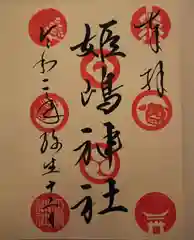 奉拝
姫嶋神社
令和二年弥生十一日